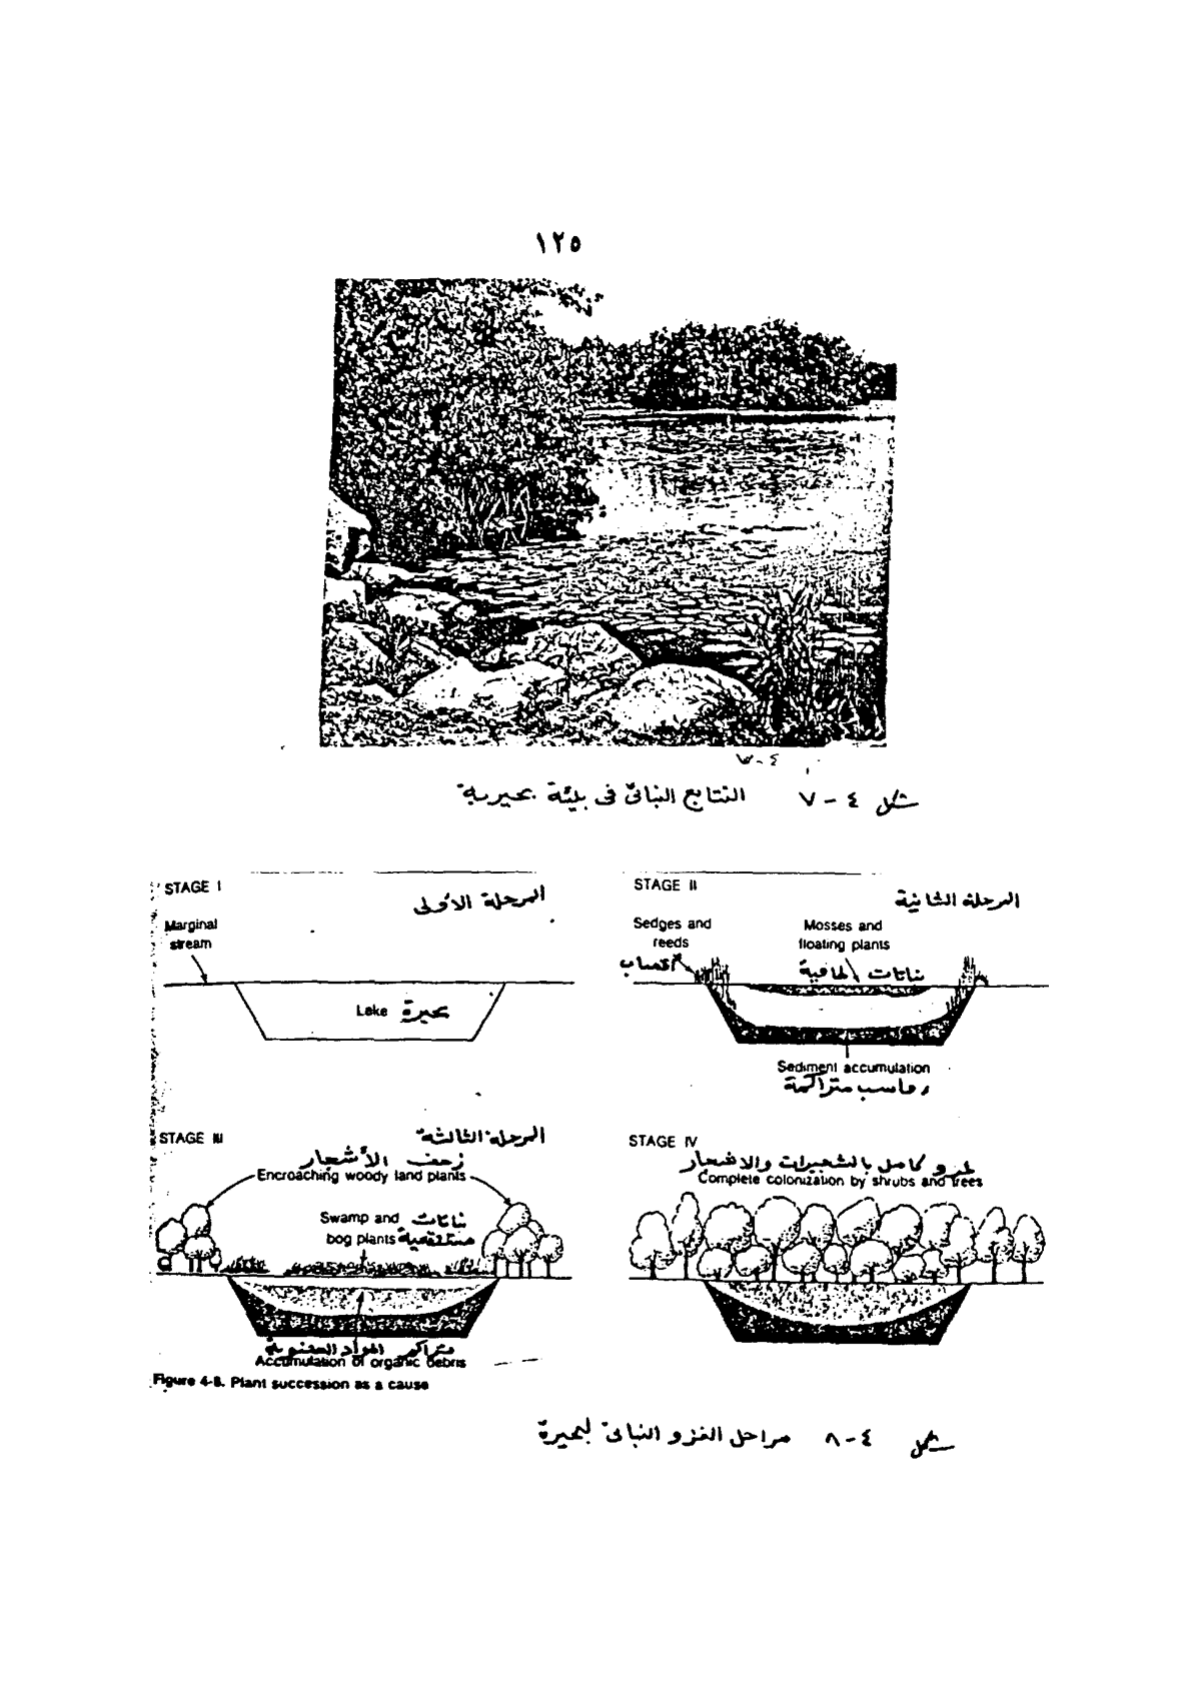 ١٢٥
شكل ٤ - ٧ التتابع النباتى فى بيئة بحيرية
STAGE I
المرحلة الأولى
Marginal
stream
Lake بحيرة
STAGE II
المرحلة الثانية
Sedges and
reeds
اقصاب
Mosses and
floating plants
نباتات طافية
Sediment accumulation
رواسب متراكمة
STAGE III
المرحلة الثالثة
زحف الأشجار
Encroaching woody land plants
Swamp and نباتات
bog plants مستنقعية
متراكم المواد العضوية
Accumulation of organic debris
Figure 4-8. Plant succession as a cause
STAGE IV
غزو كامل بالشجيرات والاشجار
Complete colonization by shrubs and trees
شكل ٤ - ٨ مراحل الغزو النباتى لبحيرة